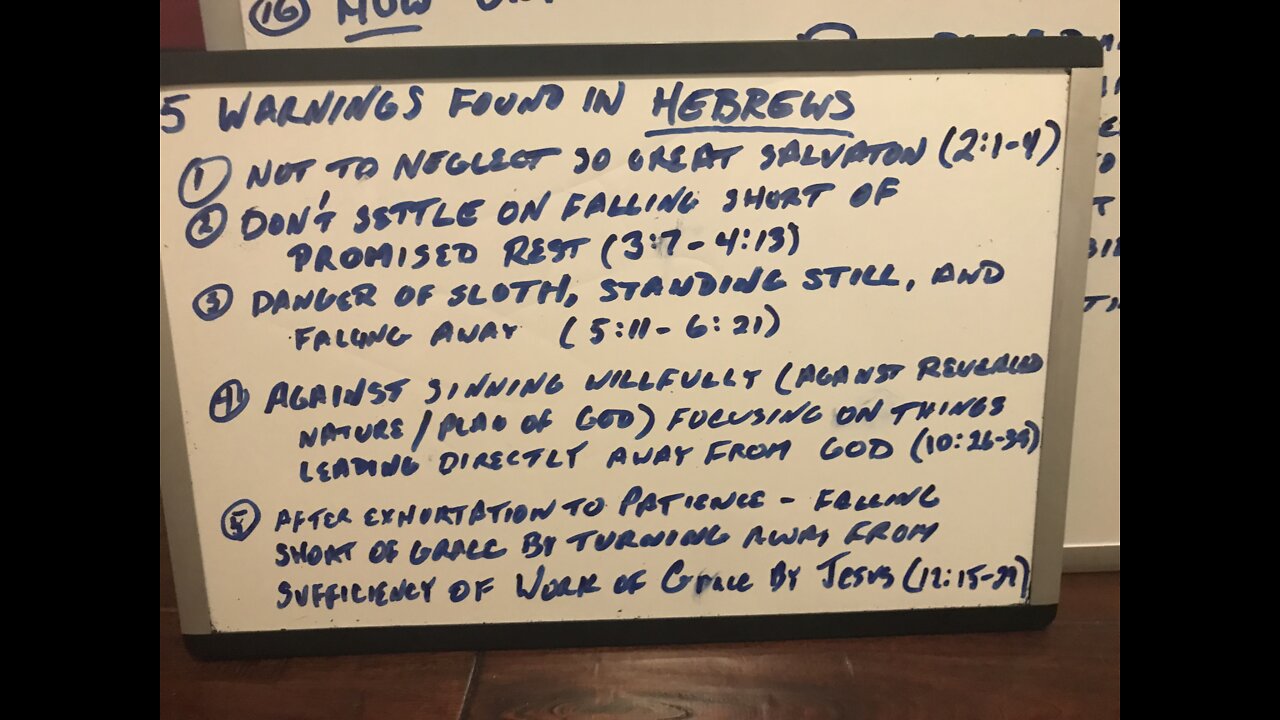 16 HOW
5 WARNINGS FOUND IN HEBREWS
1 NOT TO NEGLECT SO GREAT SALVATON (2:1-4)
2 DON'T SETTLE ON FALLING SHORT OF
PROMISED REST (3:7-4:13)
3 DANGER OF SLOTH, STANDING STILL, AND
FALLING AWAY (5:11-6:21)
4 AGAINST SINNING WILLFULLY (AGANST REVEALED
NATURE/PLAN OF GOD) FOCUSING ON THINGS
LEADING DIRECTLY AWAY FROM GOD (10:26-39)
5 AFTER EXHORTATION TO PATIENCE - FALLING
SHORT OF GRACE BY TURNING AWAY FROM
SUFFICIENCY OF WORK OF GRACE BY JESUS (12:15-29)